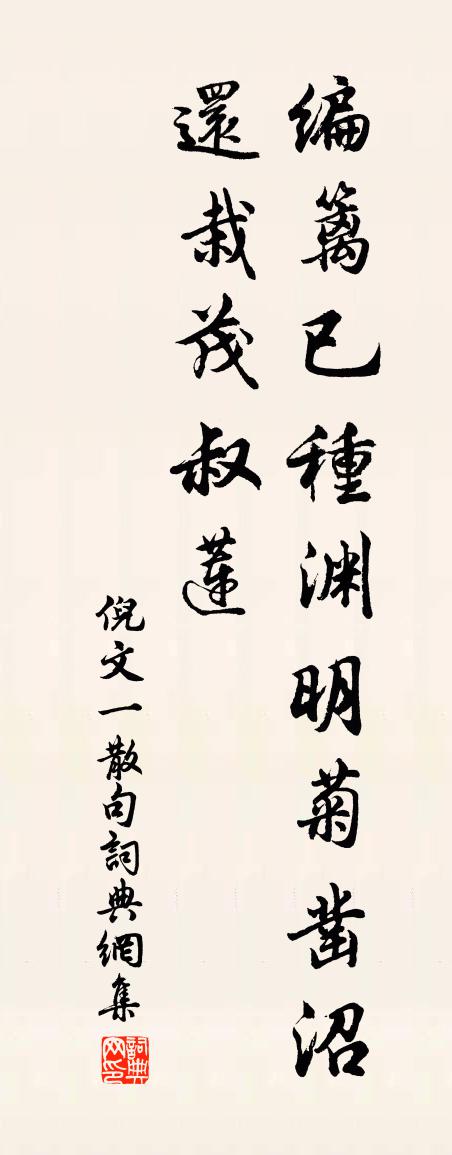 编篱已種渊明菊凿沼
還栽茂叔蓮
倪文一散句詞典網集
詞典网印